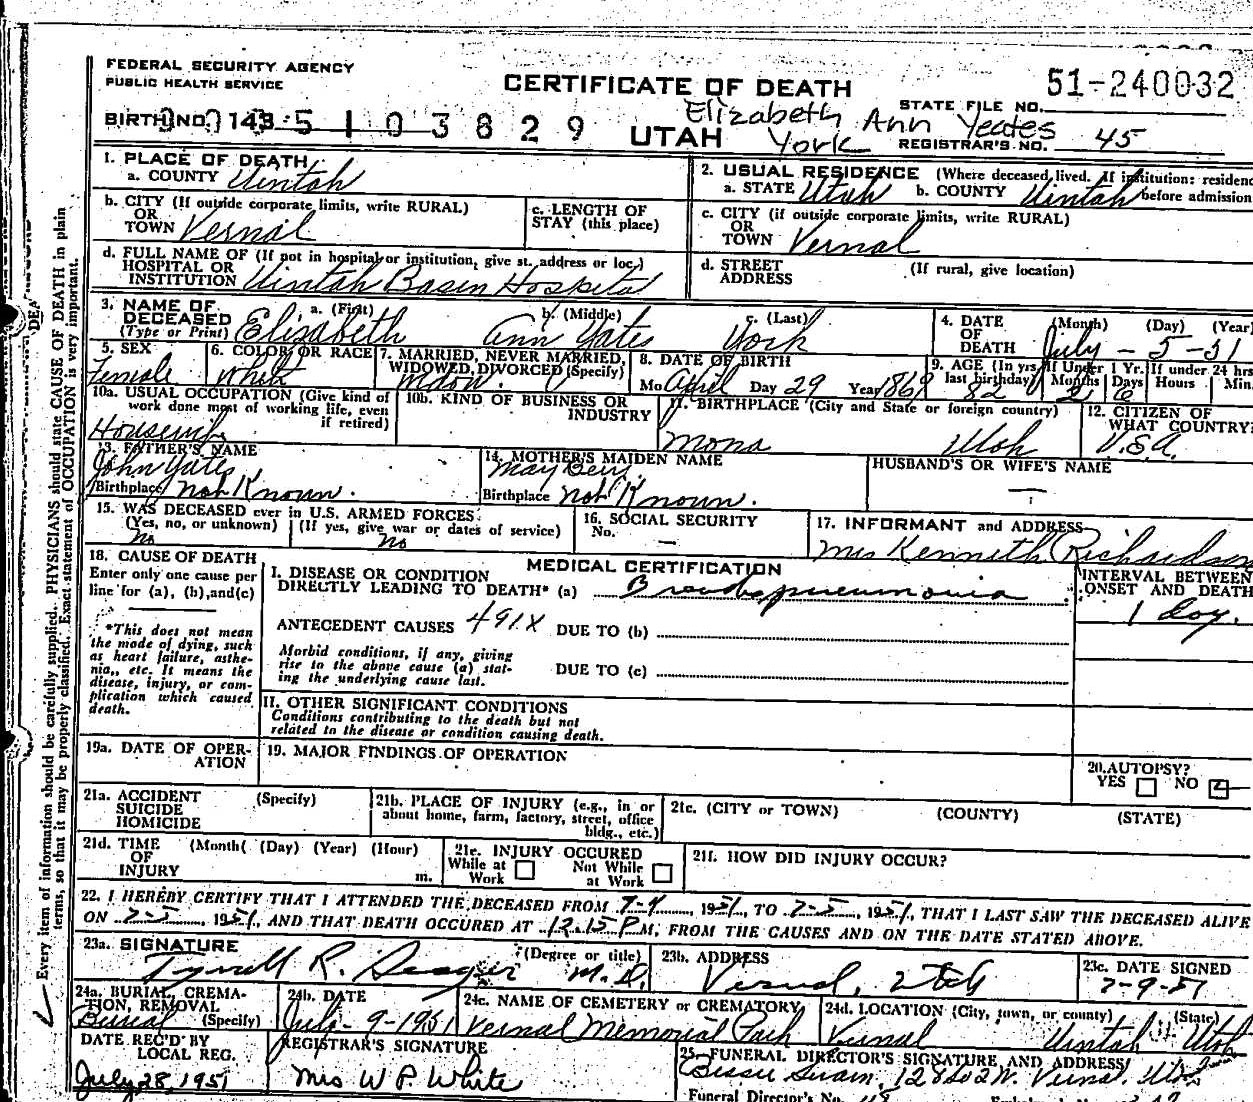 FEDERAL SECURITY AGENCY
PUBLIC HEALTH SERVICE
CERTIFICATE OF DEATH
51-240032
STATE FILE NO.
BIRTH NO. 143
5103829
UTAH
Elizabeth Ann Yeates
York
REGISTRAR'S NO. 45
1. PLACE OF DEATH
a. COUNTY Uintah
2. USUAL RESIDENCE (Where deceased lived. If institution: residence
before admission
a. STATE Utah b. COUNTY Uintah
b. CITY (If outside corporate limits, write RURAL)
OR
TOWN Vernal
c. LENGTH OF
STAY (this place)
c. CITY (if outside corporate limits, write RURAL)
OR
TOWN Vernal
d. FULL NAME OF (If not in hospital or institution, give st. address or loc.)
HOSPITAL OR
INSTITUTION Uintah Basin Hospital
d. STREET
ADDRESS
(If rural, give location)
3. NAME OF
DECEASED
(Type or Print)
a. (First) b. (Middle) c. (Last)
Elizabeth Ann Yates York
4. DATE
OF
DEATH
(Month) (Day) (Year)
July - 5 - 51
5. SEX
Female
6. COLOR OR RACE
White
7. MARRIED, NEVER MARRIED,
WIDOWED, DIVORCED (Specify)
Widow.
8. DATE OF BIRTH
Mo April Day 29 Year 1869
9. AGE (In yrs.
last birthday)
82
If Under 1 Yr.
Months Days
2 6
If under 24 hrs
Hours Min.
10a. USUAL OCCUPATION (Give kind of
work done most of working life, even
if retired)
Housewife
10b. KIND OF BUSINESS OR
INDUSTRY
11. BIRTHPLACE (City and State or foreign country)
Mona Utah
12. CITIZEN OF
WHAT COUNTRY?
U.S.A.
13. FATHER'S NAME
John Yates
Birthplace NotKnoun.
14. MOTHER'S MAIDEN NAME
May
Birthplace Not Knoun.
HUSBAND'S OR WIFE'S NAME
—
15. WAS DECEASED ever in U.S. ARMED FORCES
(Yes, no, or unknown) (If yes, give war or dates of service)
No no
16. SOCIAL SECURITY
No. —
17. INFORMANT and ADDRESS
Mrs Kenneth Richardson
18. CAUSE OF DEATH
Enter only one cause per
line for (a), (b), and (c)
*This does not mean
the mode of dying, such
as heart failure, asthe-
nia, etc. It means the
disease, injury, or com-
plication which caused
death.
MEDICAL CERTIFICATION
I. DISEASE OR CONDITION
DIRECTLY LEADING TO DEATH* (a) Bronchopneumonia
INTERVAL BETWEEN
ONSET AND DEATH
1 day.
ANTECEDENT CAUSES 491X DUE TO (b)
Morbid conditions, if any, giving
rise to the above cause (a) stat-
ing the underlying cause last.
DUE TO (c)
II. OTHER SIGNIFICANT CONDITIONS
Conditions contributing to the death but not
related to the disease or condition causing death.
19a. DATE OF OPER-
ATION
19. MAJOR FINDINGS OF OPERATION
20. AUTOPSY?
YES NO
21a. ACCIDENT
SUICIDE
HOMICIDE
(Specify)
21b. PLACE OF INJURY (e.g., in or
about home, farm, factory, street, office
bldg., etc.)
21c. (CITY or TOWN) (COUNTY) (STATE)
21d. TIME
OF
INJURY
(Month( (Day) (Year) (Hour)
m.
21e. INJURY OCCURED
While at
Work
Not While
at Work
21f. HOW DID INJURY OCCUR?
22. I HEREBY CERTIFY THAT I ATTENDED THE DECEASED FROM 7-4, 1951, TO 7-5, 1951, THAT I LAST SAW THE DECEASED ALIVE
ON 7-5, 1951, AND THAT DEATH OCCURED AT 12.15 P M, FROM THE CAUSES AND ON THE DATE STATED ABOVE.
23a. SIGNATURE (Degree or title)
Tyrrell R. Seager M.D.
23b. ADDRESS
Vernal, Utah
23c. DATE SIGNED
7-9-51
24a. BURIAL, CREMA-
TION, REMOVAL
Burial (Specify)
24b. DATE
July - 9-1951
24c. NAME OF CEMETERY or CREMATORY
Vernal Memorial Park
24d. LOCATION (City, town, or county) (State)
Vernal Uintah Utah
DATE REC'D BY
LOCAL REG.
July 28, 1951
REGISTRAR'S SIGNATURE
Mrs W P. White
25. FUNERAL DIRECTOR'S SIGNATURE AND ADDRESS
Bessie Swain, 128 So 2 W. Vernal, Utah
Funeral Director's No.
Every item of information should be carefully supplied. PHYSICIANS should state CAUSE OF DEATH in plain
terms, so that it may be properly classified. Exact statement of OCCUPATION is very important.